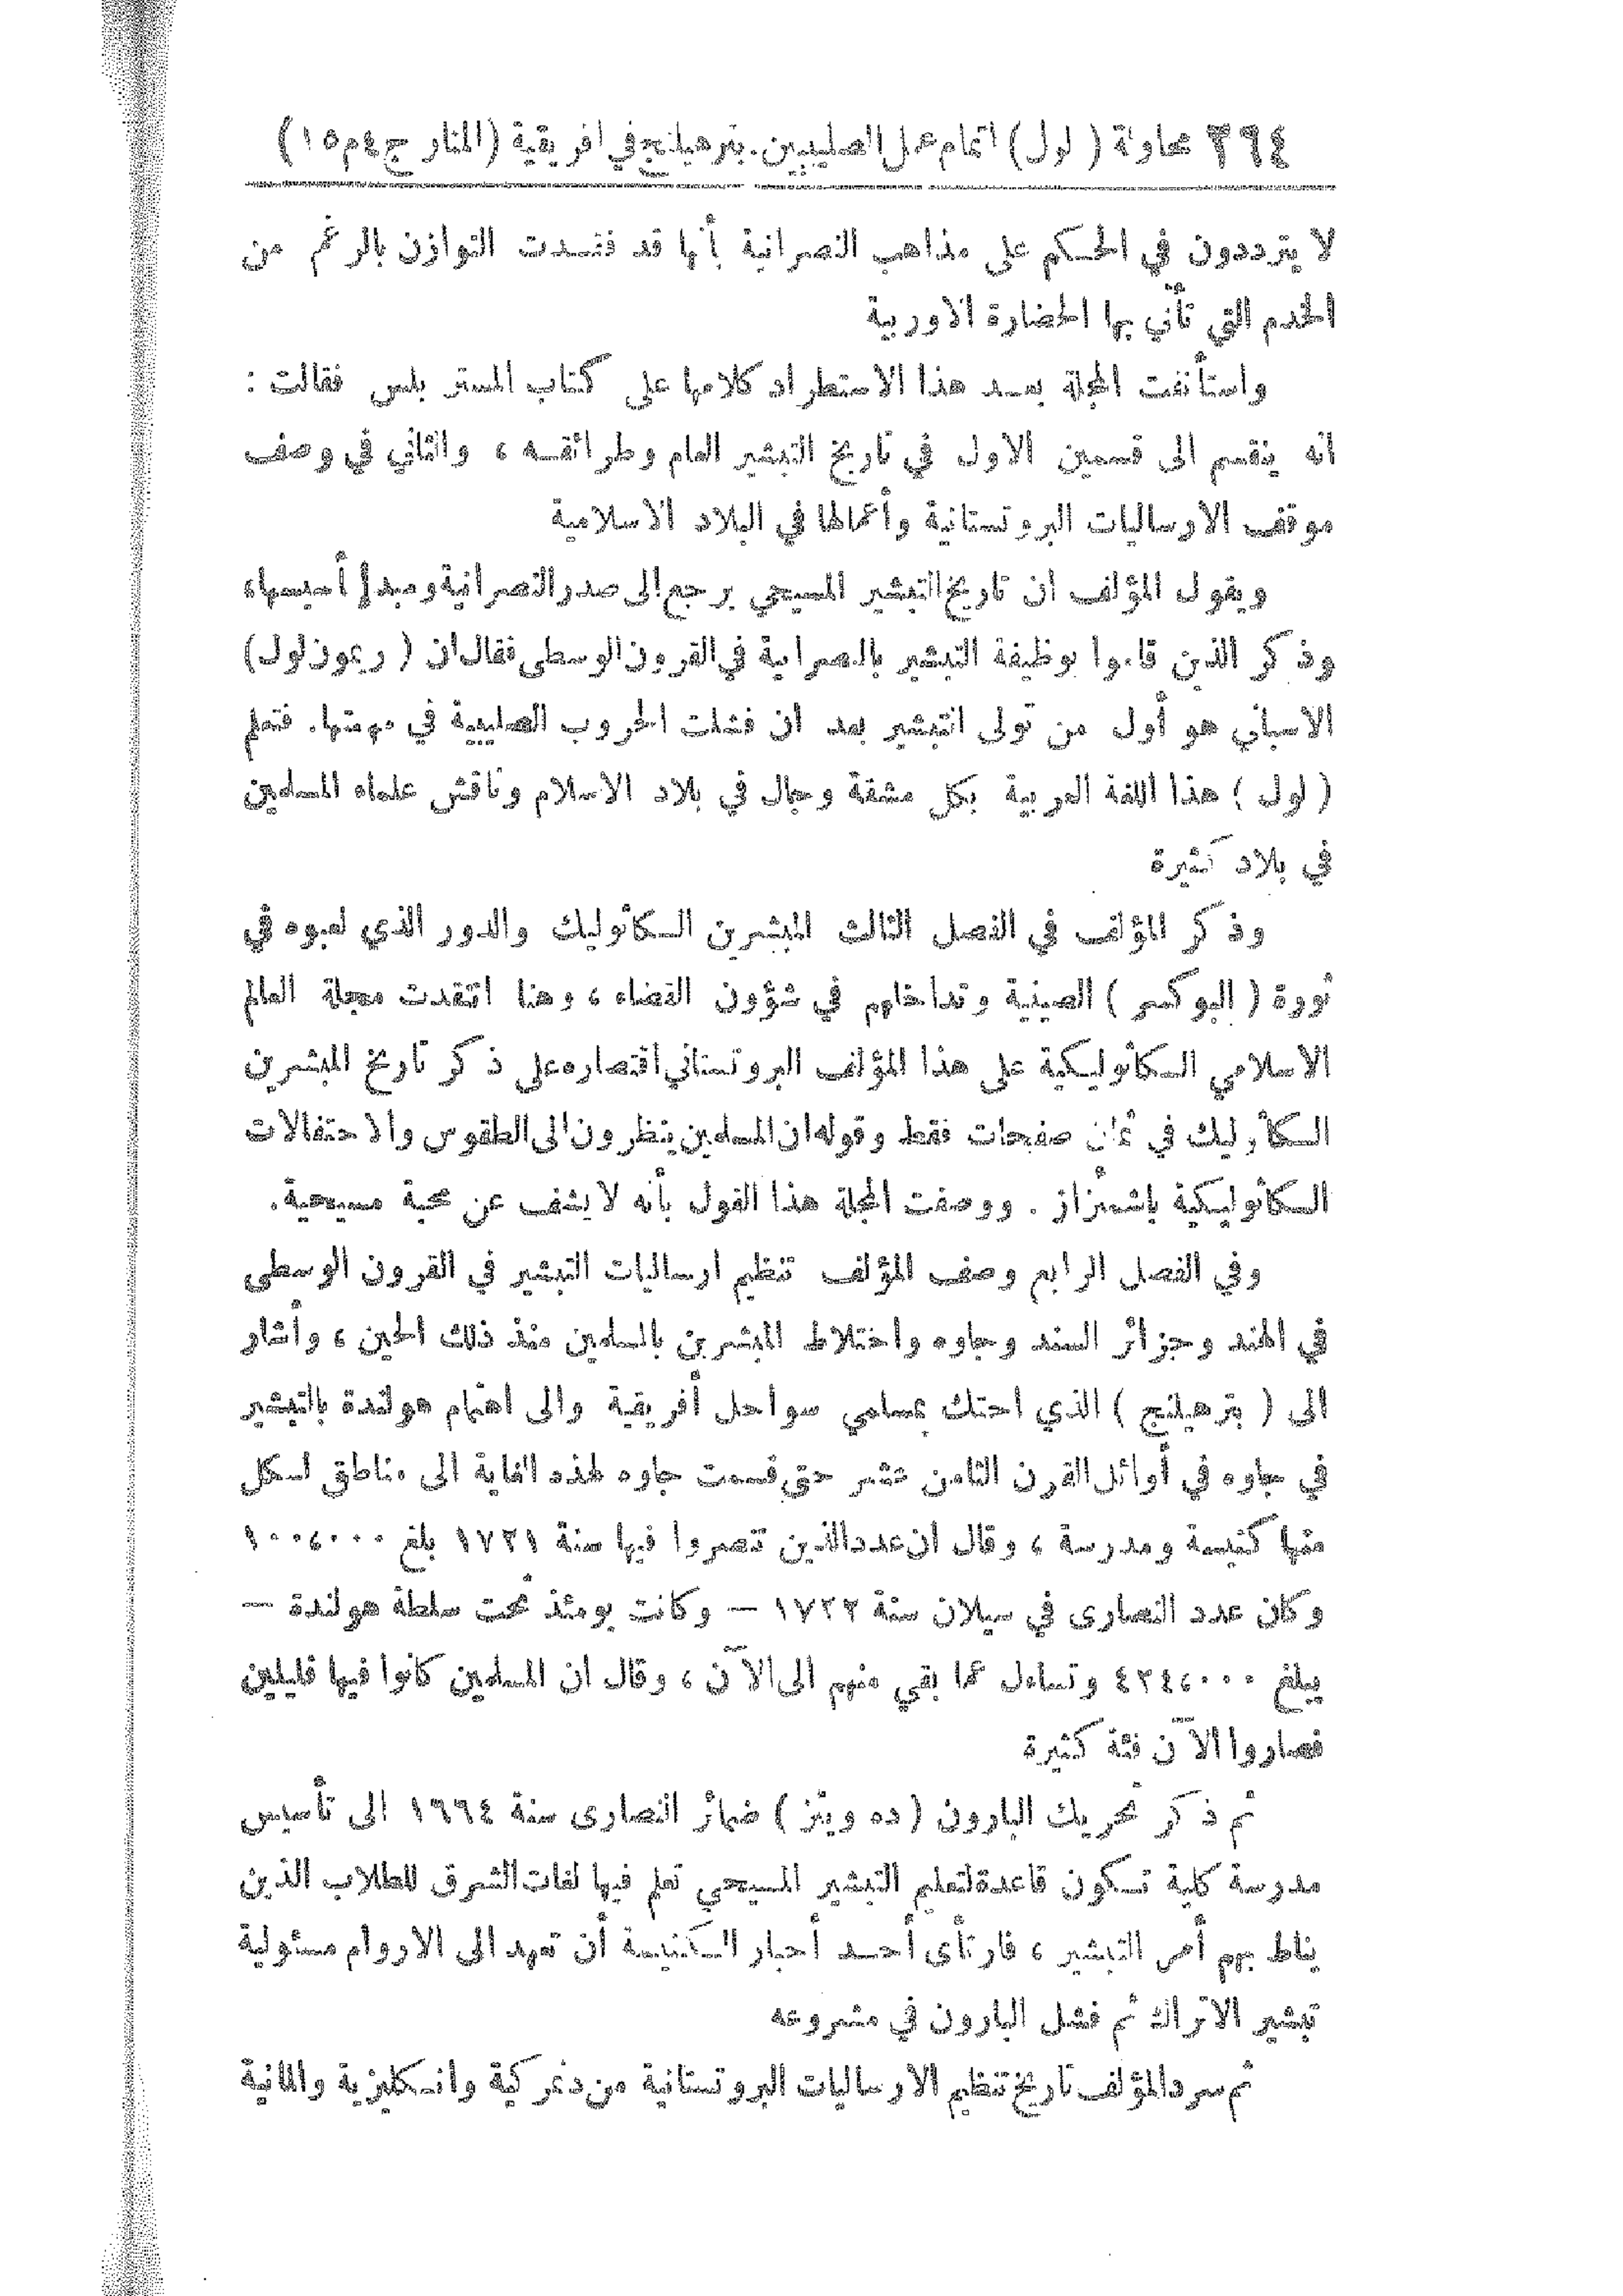 ٢٦٤ محاولة ( لول ) اتمام عمل الصليبيين. بترهيلنج في افريقية (المنار ج٤م١٥)
لا يترددون في الحكم على مذاهب النصرانية بأنها قد فقدت التوازن بالرغم من
الخدم التي تأتي بها الحضارة الاوربية
واستأنفت المجلة بعد هذا الاستطراد كلامها على كتاب المستر بلس فقالت :
انه ينقسم الى قسمين الاول في تاريخ التبشير العام وطرائقه ، والثاني في وصف
موقف الارساليات البروتستانية وأعمالها في البلاد الاسلامية
ويقول المؤلف ان تاريخ التبشير المسيحي يرجع الى صدر النصرانية ومبدإ أسيسها،
وذكر الذين قاموا بوظيفة التبشير بالنصرانية في القرون الوسطى فقال ان ( ريمون لول )
الاسباني هو أول من تولى التبشير بعد ان فشلت الحروب الصليبية في مهمتها. فتعلم
( لول ) هذا اللغة العربية بكل مشقة وجال في بلاد الاسلام وناقش علماء المسلمين
في بلاد كثيرة
وذكر المؤلف في الفصل الثالث المبشرين الكاثوليك والدور الذي لعبوه في
ثورة ( البوكسر ) الصينية وتداخلهم في شؤون القضاء ، وهنا انتقدت مجلة العالم
الاسلامي الكاثوليكية على هذا المؤلف البروتستاني اقتصاره على ذكر تاريخ المبشرين
الكاثوليك في ثمان صفحات فقط وقوله ان المسلمين ينظرون الى الطقوس والاحتفالات
الكاثوليكية باشمئزاز . ووصفت المجلة هذا القول بأنه لا يشف عن محبة مسيحية.
وفي الفصل الرابع وصف المؤلف تنظيم ارساليات التبشير في القرون الوسطى
في الهند وجزائر السند وجاوه واختلاط المبشرين بالمسلمين منذ ذلك الحين ، وأشار
الى ( بترهيلنج ) الذي احتك بمسلمي سواحل أفريقية والى اهتمام هولندة بالتبشير
في جاوه في أوائل القرن الثامن عشر حتى قسمت جاوه لهذه الغاية الى مناطق لكل
منها كنيسة ومدرسة ، وقال ان عدد الذين تنصروا فيها سنة ١٧٢١ بلغ ١٠٠،٠٠٠
وكان عدد النصارى في سيلان سنة ١٧٢٢ — وكانت يومئذ تحت سلطة هولندة —
يبلغ ٤٢٤،٠٠٠ وتساءل عما بقي منهم الى الآن ، وقال ان المسلمين كانوا فيها قليلين
فصاروا الآن فئة كثيرة
ثم ذكر تحريك البارون ( ده ويتز ) ضمائر النصارى سنة ١٦٦٤ الى تأسيس
مدرسة كلية تكون قاعدة لتعليم التبشير المسيحي تعلم فيها لغات الشرق للطلاب الذين
يناط بهم أمر التبشير ، فارتأى أحد أحبار الكنيسة أن تعهد الى الاروام مسئولية
تبشير الاتراك ثم فشل البارون في مشروعه
ثم سرد المؤلف تاريخ تنظيم الارساليات البروتستانية من دنمركية وانكليزية والمانية